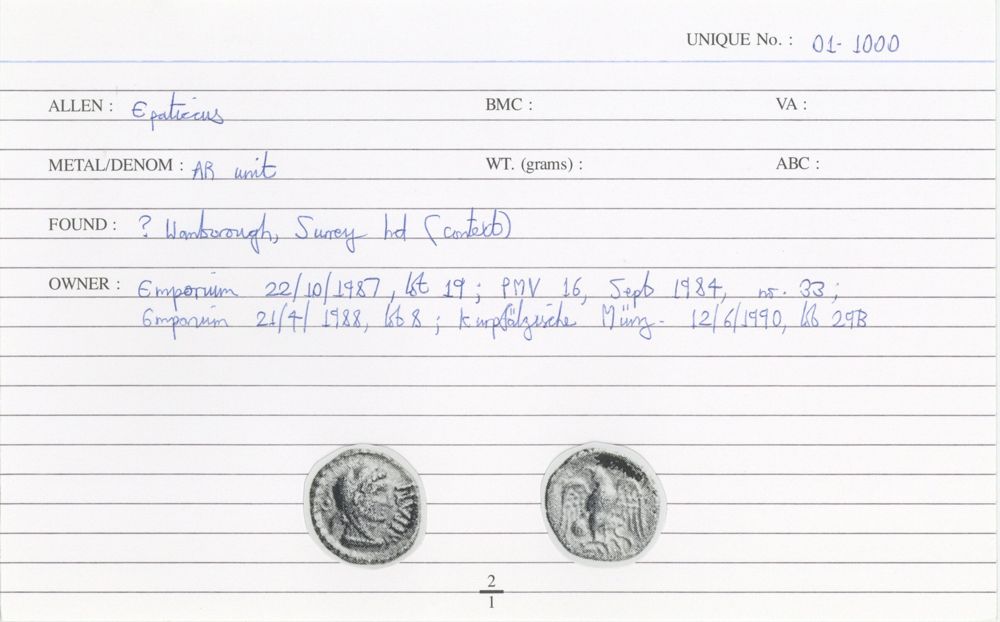 UNIQUE No. : 01-1000
ALLEN : Epaticcus BMC : VA :
METAL/DENOM : AR unit WT. (grams) : ABC :
FOUND : ? Wanborough, Surrey hd (context)
OWNER : Emporium 22/10/1987, lot 19 ; PMV 16, Sept 1984, nr. 33 ;
Emporium 21/4/1988, lot 8 ; Kurpfälzische Münz- 12/6/1990, lot 29B
2
1